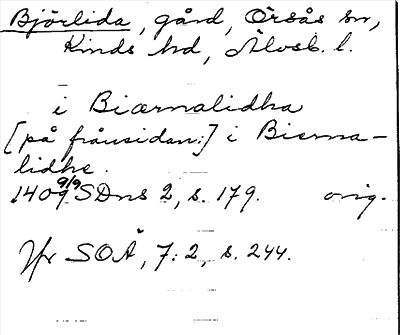 Björlida, gård, Örsås sn,
Kinds hd, Älvsb. l.
i Biærnalidha
[på frånsidan:] i Bierna-
lidhe.
1409 9/9 SDns 2, s. 179. orig.
Jfr SOÄ, 7:2, s. 244.